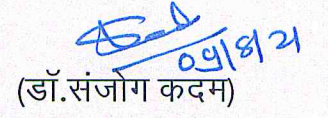 ०९/८/२१
(डॉ.संजोग कदम)